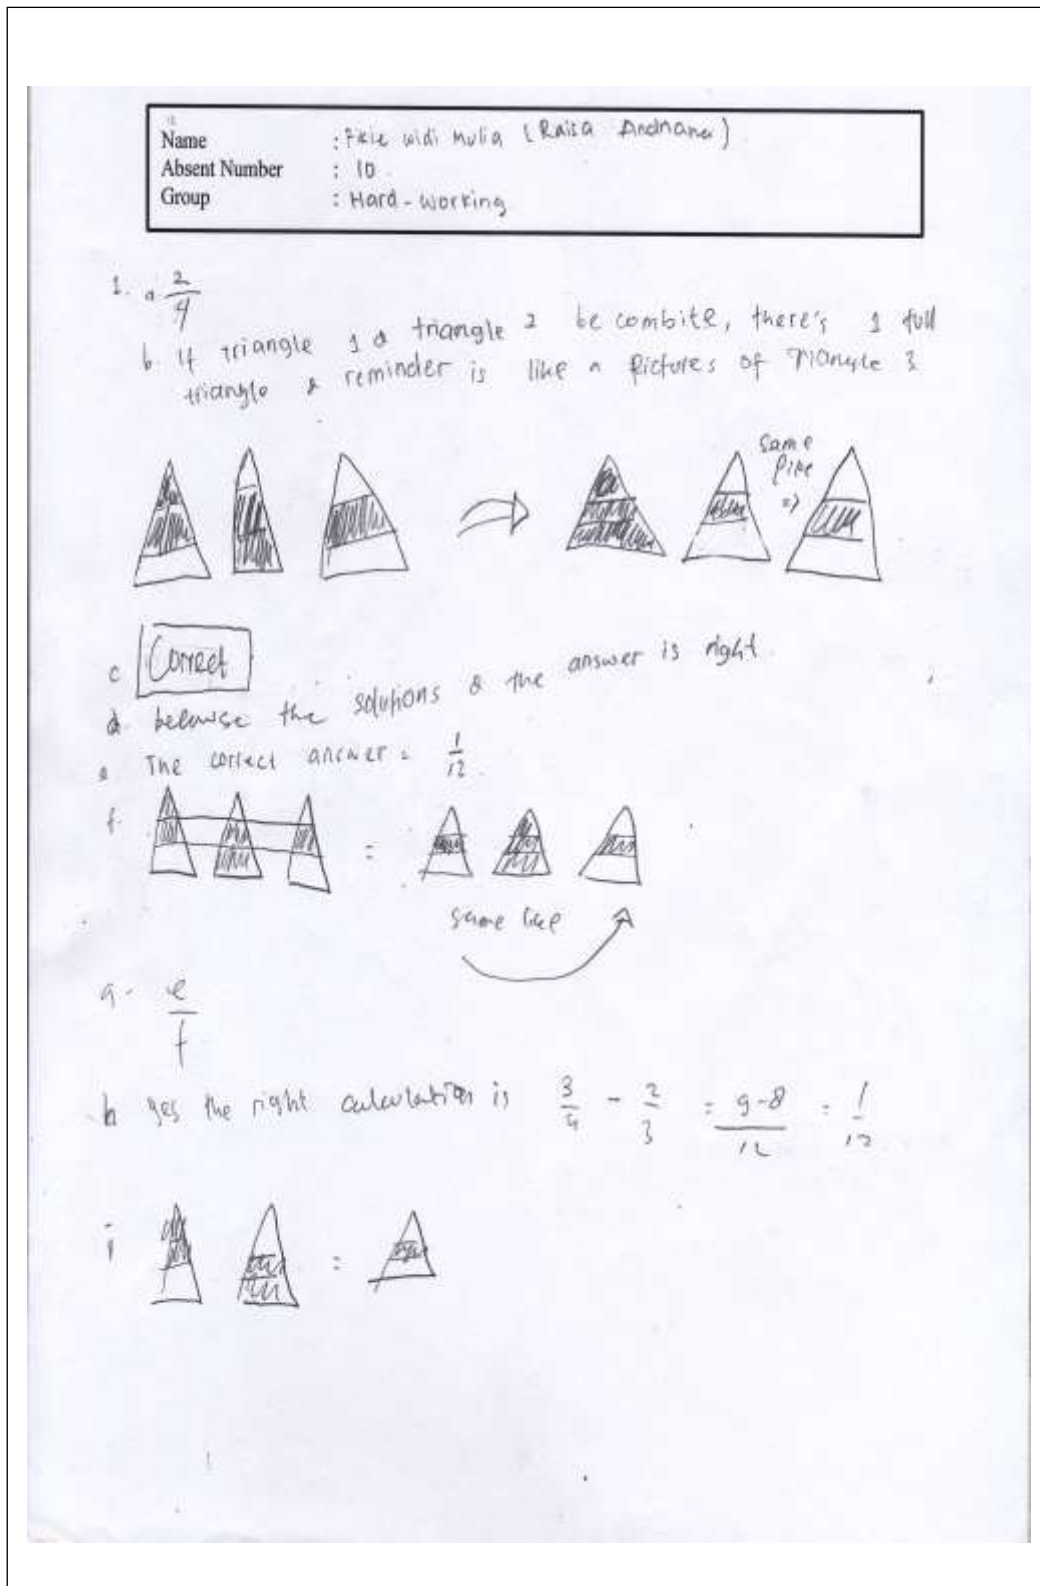 Name : Fikie widi mulia (Raisa Andriana)
Absent Number : 10
Group : Hard-working
1. a. 2/4
b. If triangle 1 & triangle 2 be combite, there's 1 full
triangle & reminder is like a Pictures of Triangle 3
Same
like
=>
c Correct
d. because the solutions & the answer is right.
e The correct answer = 1/12
f. =
same like
g. e/f
h yes the right calculation is 3/4 - 2/3 = 9-8/12 = 1/12
i =